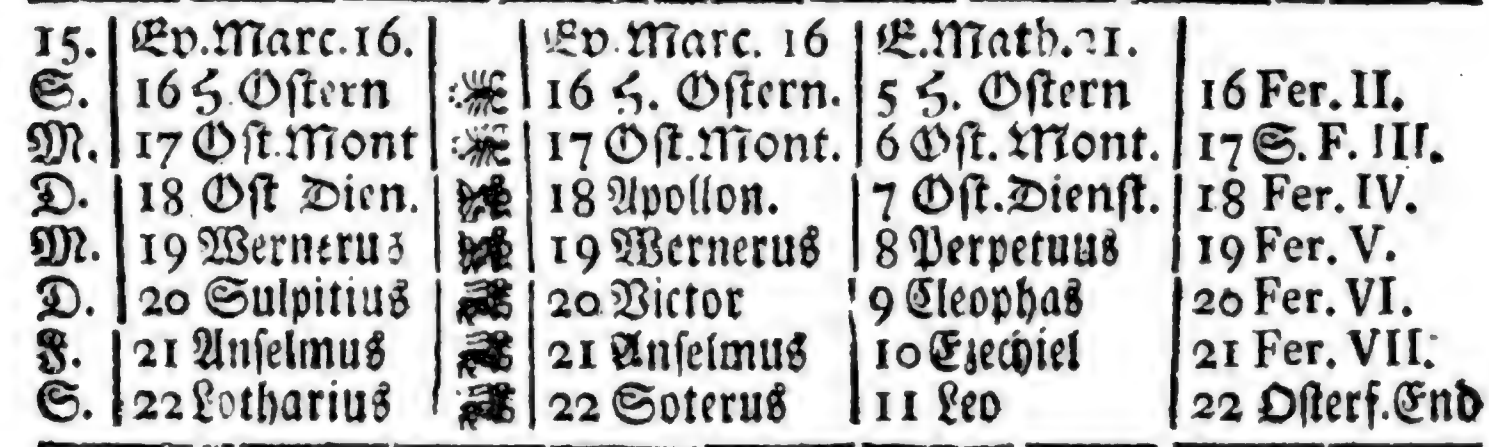 15. Ev. Marc. 16. Ev. Marc. 16 E. Math. 21.
S. 16 H. Oſtern 16 H. Oſtern. 5 H. Oſtern 16 Fer. II.
M. 17 Oſt. Mont 17 Oſt. Mont. 6 Oſt. Mont. 17 S. F. III.
D. 18 Oſt Dien. 18 Apollon. 7 Oſt. Dienſt. 18 Fer. IV.
M. 19 Wernerus 19 Wernerus 8 Perpetuus 19 Fer. V.
D. 20 Sulpitius 20 Victor 9 Cleophas 20 Fer. VI.
F. 21 Anſelmus 21 Anſelmus 10 Ezechiel 21 Fer. VII.
S. 22 Lotharius 22 Soterus 11 Leo 22 Oſterf. End